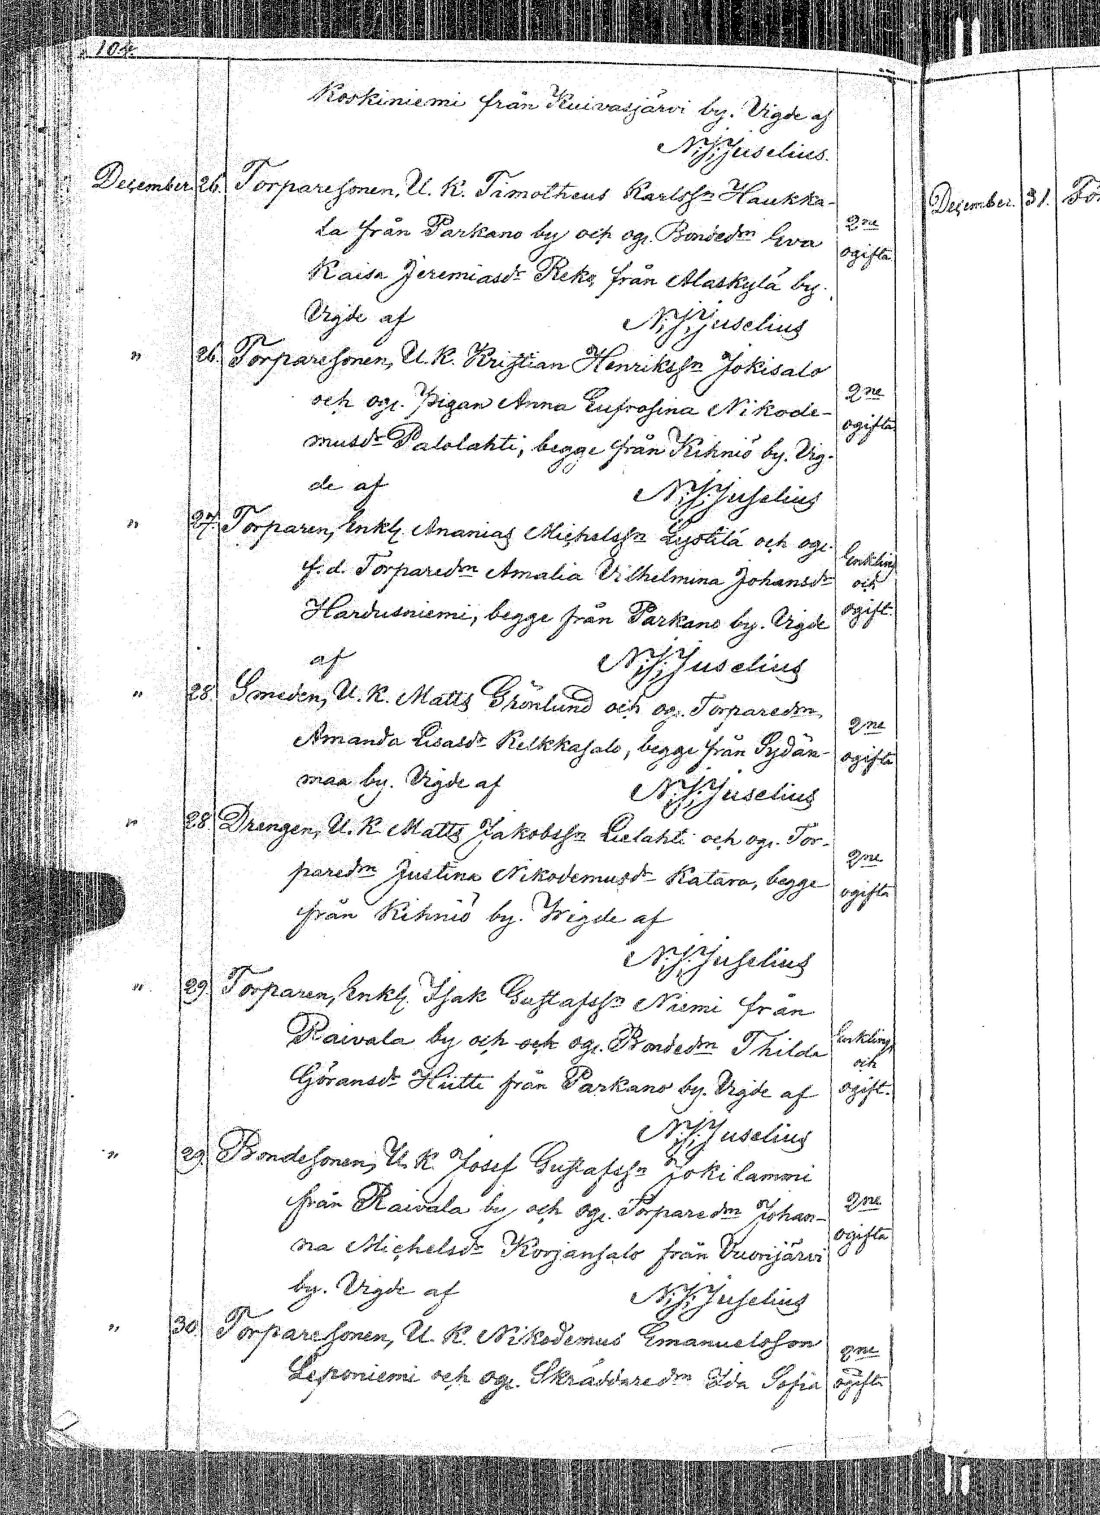 104
Koskiniemi från Kuivasjärvi by. Vigde af
N. J. Juselius.
December. 26. Torparesonen, U. K. Timotheus Karlssn Haukka-
la från Parkano by och og. Bondedm Eva
Kaisa Jeremiasdr Reko, från Alaskylä by.
Vigde af N. J. Juselius
2ne
ogifta
" 26. Torparesonen, U. K. Kristian Henrikssn Jokisalo
och og. Pigan Anna Eufrosina Nikode-
musdr Palolahti, begge från Kihniö by. Vig-
de af N. J. Juselius
2ne
ogifta
" 27. Torparen, Enkl. Ananias Michelssn Lystilä och og.
f. d. Torparedm Amalia Vilhelmina Johansdr
Hardusniemi, begge från Parkano by. Vigde
af N. J. Juselius
Enkling
och
ogift.
" 28. Smeden, U. K. Matts Grönlund och og. Torparedm
Amanda Lisasdr Kelkkasalo, begge från Sydän-
maa by. Vigde af N. J. Juselius
2ne
ogifta
" 28 Drengen, U. K. Matts Jakobssn Lielahti och og. Tor-
paredm Justina Nikodemusdr Katara, begge
från Kihniö by. Wigde af
N. J. Juselius
2ne
ogifta
" 29. Torparen, Enkl. Isak Gustafssn Niemi från
Raivala by och och og. Bondedm Thilda
Göransdr Hütti från Parkano by. Vigde af
N. J. Juselius
Enkling
och
ogift.
" 29. Bondesonen, U. K. Josef Gustafssn Jokilammi
från Raivala by och og. Torparedm Johan-
na Michelsdr Korjansalo från Vuorijärvi
by. Vigde af N. J. Juselius
2ne
ogifta
" 30. Torparesonen, U. K. Nikodemus Emanuelsson
Leponiemi och og. Skräddaredm Ida Sofia
2ne
ogifta
December. 31. Tor